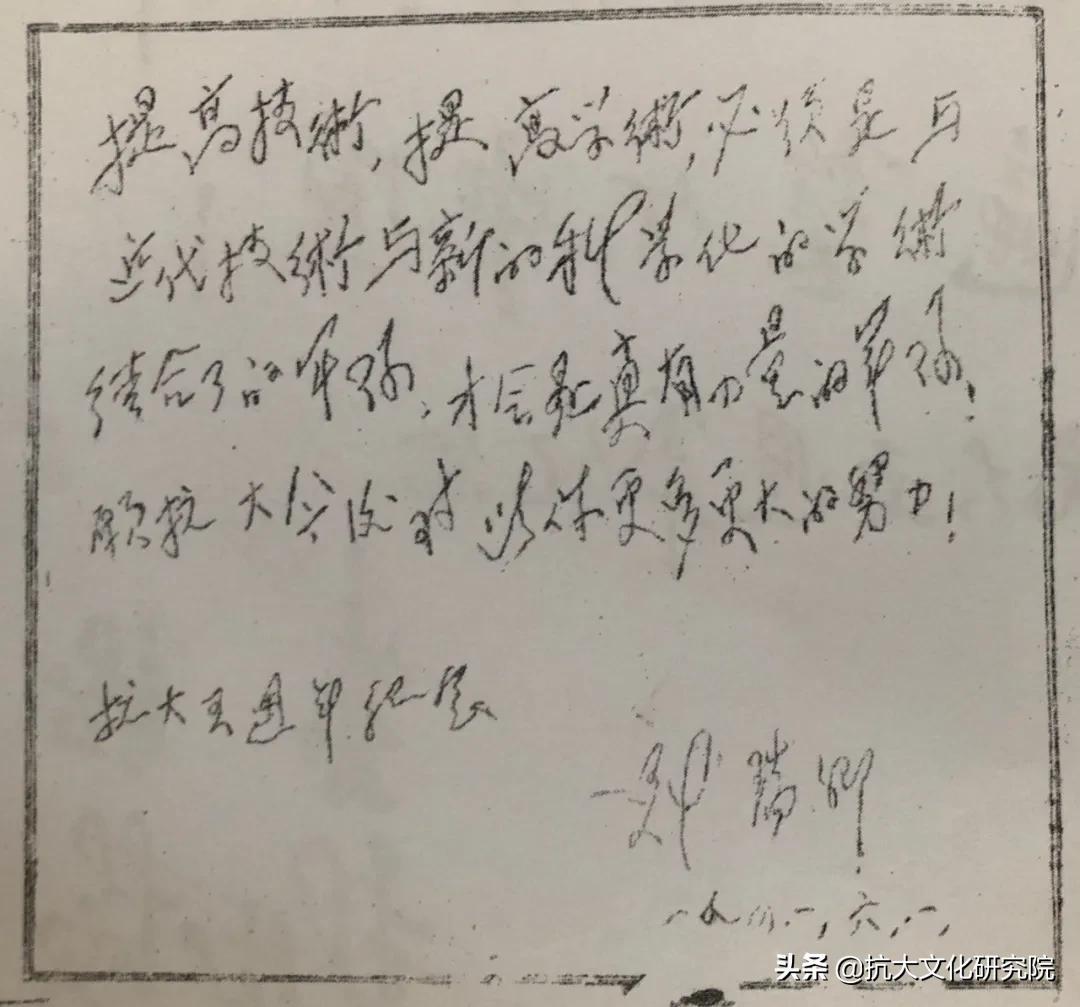 提高技術,提高学術,必须是与
近代技術与新的科学化的学術
结合了的军队,才会是真有力量的军队!
願抗大今后对此作更多更大的努力!
抗大五週年纪念
瑞卿
一九四一,六,一,
头条 @抗大文化研究院